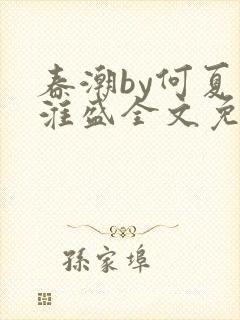 春潮by何夏
淮盛全文免
孫家埠